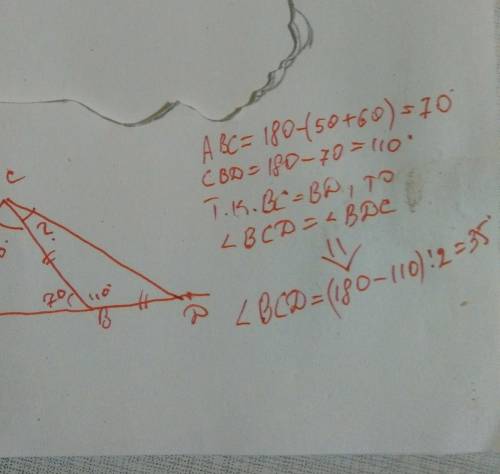 ABC = 180-(50+60) = 70°
CBD = 180-70 = 110°
Т.К. BC = BD, ТО
∠BCD = ∠BDC
∠BCD = (180-110):2 = 35°
C
?
0°
70° 110°
B
D